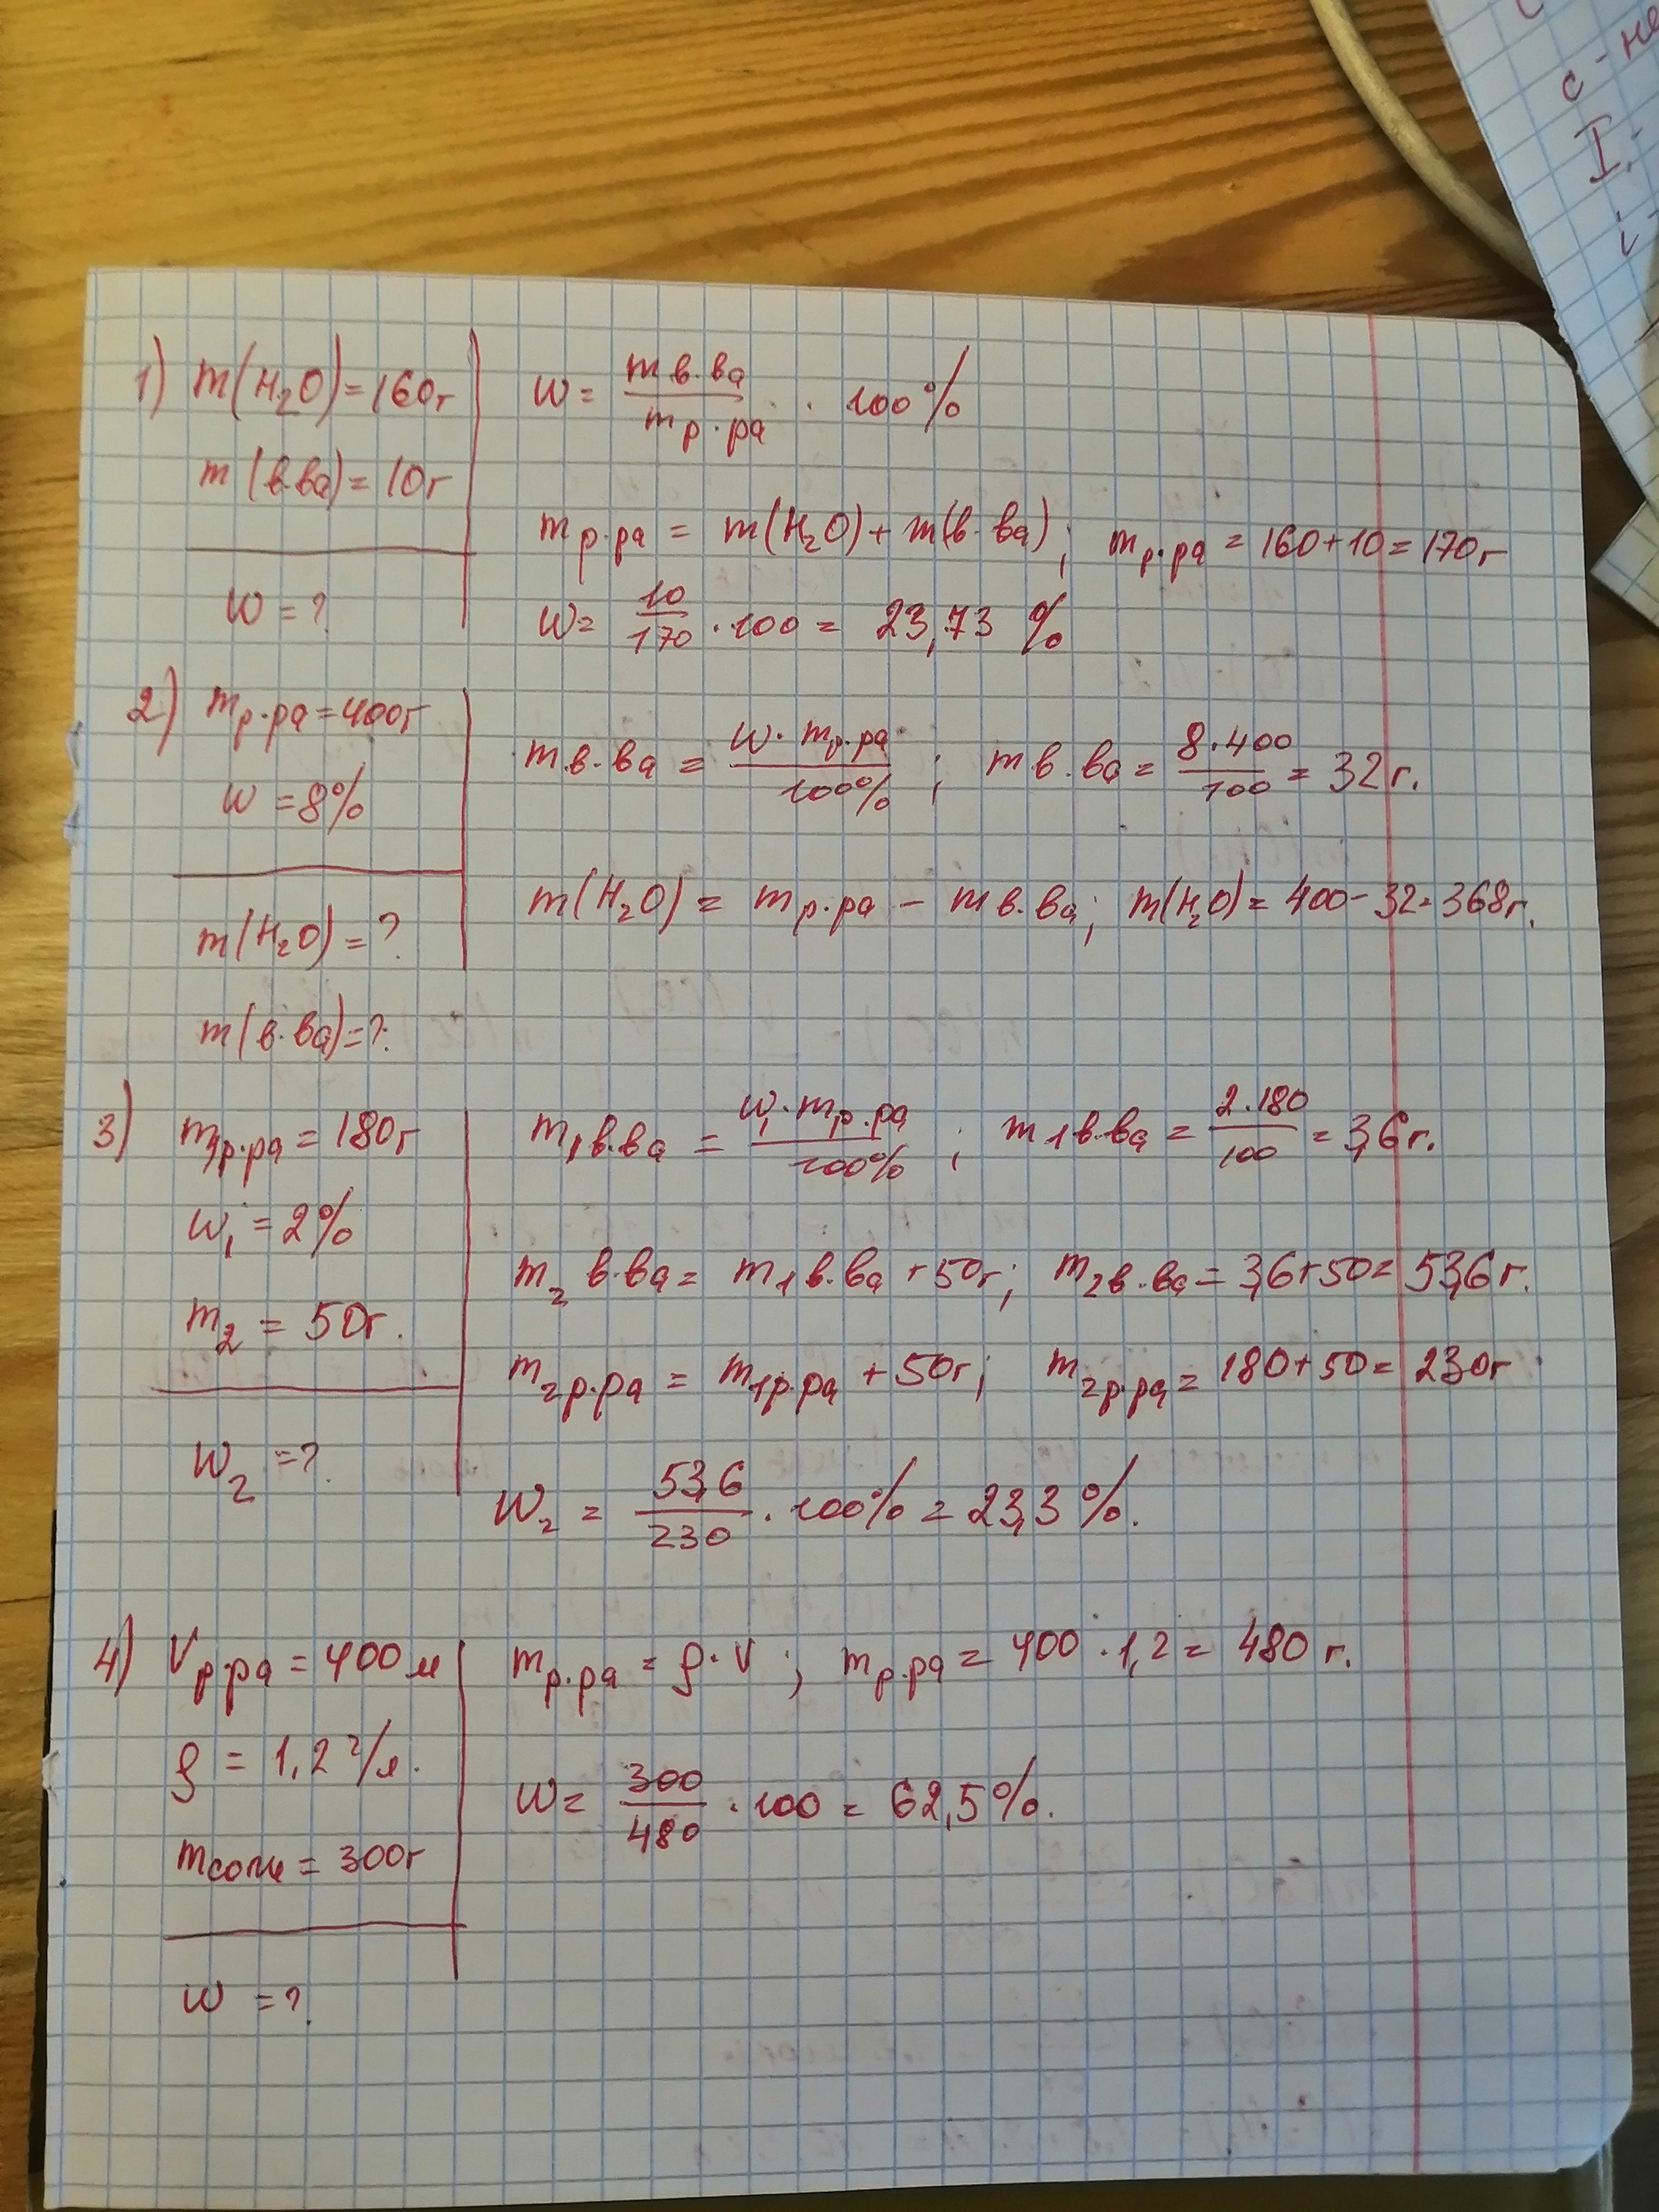 с - не
I -
i -
1) m(H₂O)=160г
m(в.ва)=10г
W=?
W= mв.ва/mр.ра · 100%
mр.ра = m(H₂O)+m(в.ва); mр.ра=160+10=170г
W= 10/170 · 100= 23,73 %
2) mр.ра=400г
W=8%
m(H₂O)=?
m(в.ва)=?
mв.ва = W·mр.ра/100% ; mв.ва= 8·400/100 = 32г.
m(H₂O)= mр.ра - mв.ва; m(H₂O)=400-32=368г.
3) m₁р.ра=180г
W₁=2%
m₂ = 50г.
W₂=?
m₁в.ва = W₁·mр.ра/100% ; m₁в.ва = 2·180/100 = 3,6г.
m₂в.ва= m₁в.ва+50г; m₂в.ва=3,6+50=53,6г.
m₂р.ра = m₁р.ра+50г; m₂р.ра=180+50=230г
W₂ = 53,6/230 · 100% = 23,3%.
4) Vр.ра=400м
ρ = 1,2г/л.
mсоли=300г
W=?
mр.ра=ρ·V; mр.ра=400·1,2=480г.
W= 300/480 · 100= 62,5%.